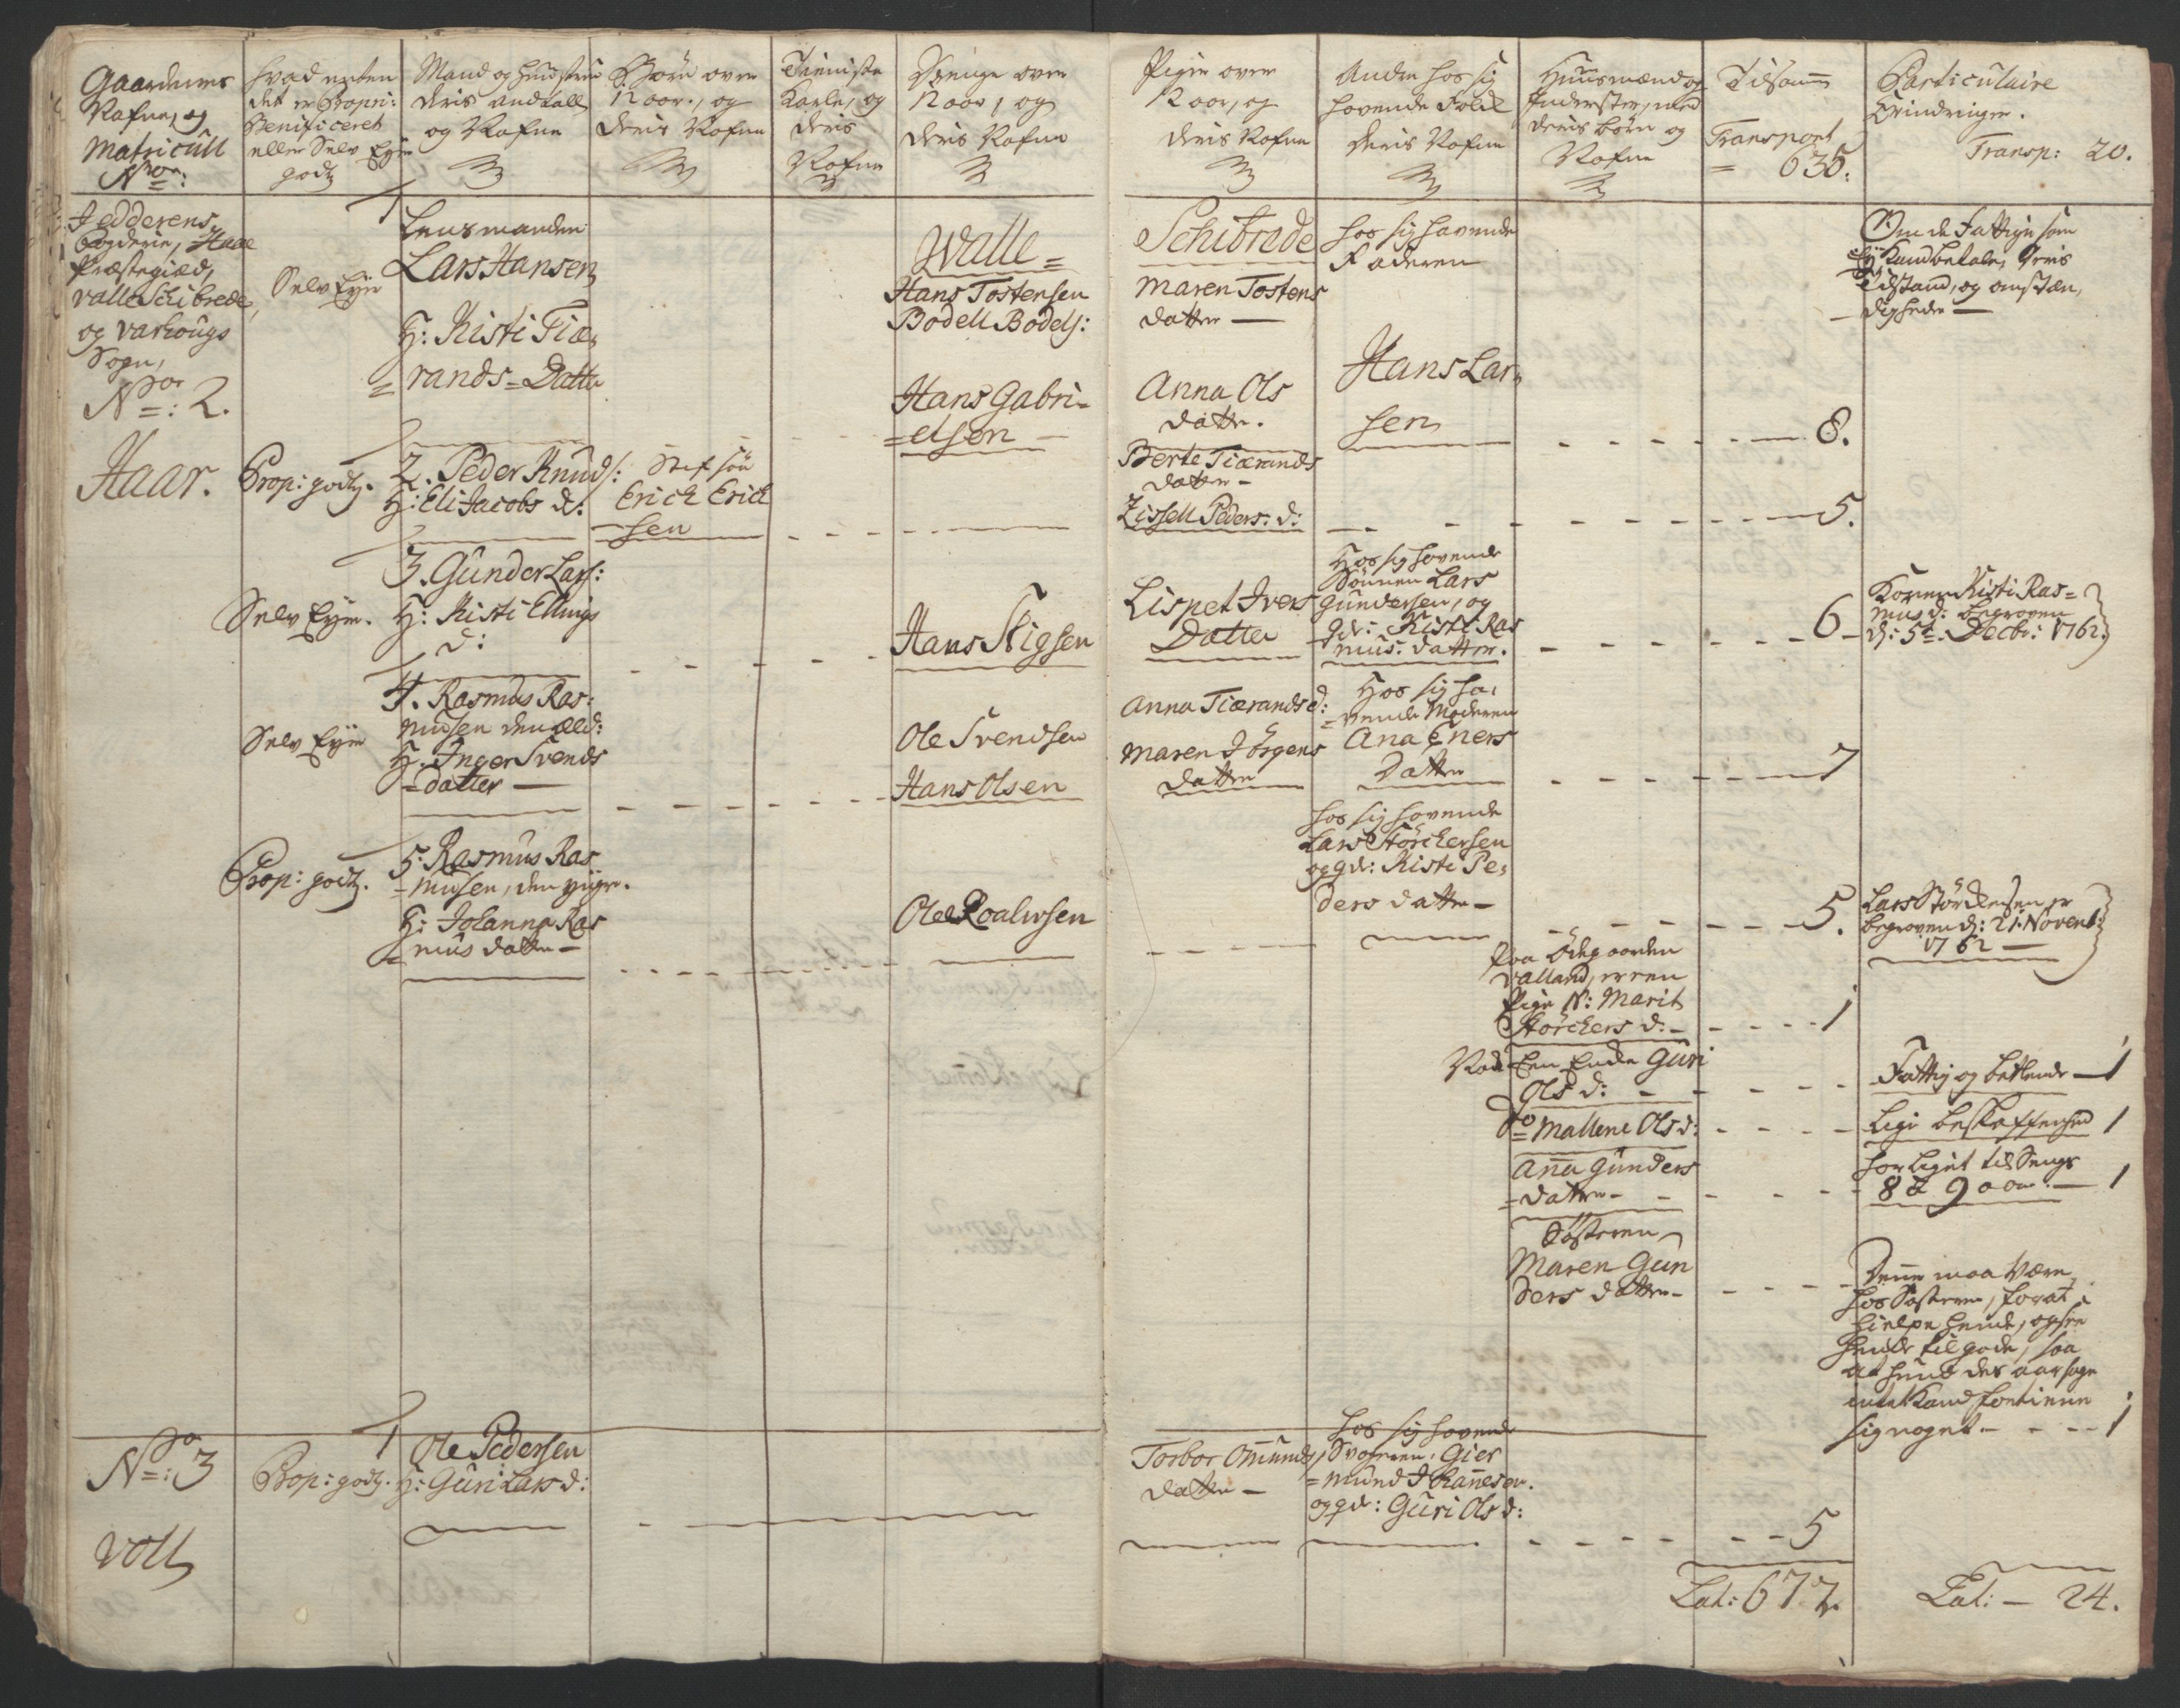 Gaardenes
Nafne, og
Matricull
No:
hvad enten
det er Propri:
Benificeret
eller Selv Eyer
godtz
Mand og hustrue
deris andtall
og Nafne
Børn over
12 aar, og
deris Nafne
Tieniste
Karle, og
deris
Nafne
Drenge over
12 aar, og
deris Nafne
Piger over
12 aar, og
deris Nafne
Andre hos sig
havende Folck
deris Nafne
Huusmænd og
Inderster, med
deris børn og
Nafne
Tilsamm
Transport
= 635:
Particulaire
Erindringer.
Transp: 20.
Jedderens
Fogderie, Haae
Præstegield,
Valle Schibrede,
og Varhougs
Sogn,
No: 2.
Haar.
Selv Eyer
1
Lensmanden
Lars Hansen
H: Kisti Tiæ,
= rands = Datter
Walle =
Hans Tostensen
Bodell Bodels:
Hans Gabri=
=elsen
Schibrede
Maren Tostens
datter
Anna Ols
datter.
hos sig havende
Faderen
Hans Lar,
sen
8.
Om de Fattige som
ej Kand betale, deris
Tilstand, og omstæn,
digheder
Prop: godtz.
2. Peder Knuds:
H: Eli Jacobs d:
Stef søn
Erich Erich
sen
Berte Tiærands
datter
Zissell Peders: d:
5.
Selv Eyer.
3. Gunder Lars:
H: Kisti Ellings
d:
Hans Stigsen
Lispet Ivers
Datter
Hos sig havende
Sønnen Lars
Gundersen, og
qv: Kisti Ras
mus: datter.
6
Konen Kisti Ras=
mus d: begraven
d: 5te Decbr: 1762.
Selv Eyer
4. Rasmus Ras:
musen den æld:
H. Inger Svends
=datter
Ole Svendsen
Hans Olsen
Anna Tiærands d:
Maren Jörgens
datter
Hos sig ha,
=vende Moderen
Ana Eners
Datter
7
Prop: godtz.
5. Rasmus Ras
=musen, den yngre.
H: Johanna Ras
=mus datter
Ole Roalvsen
hos sig havende
Lars Störchersen
og qv: Kisti Pe,
ders datter
5.
Lars Störchersen er
begraven d: 21. Novemb:
1762
Paa Ödegaarden
Valland, er en
Pige N: Marit
Störchers d:
1
Nock Een Encke Guri
Ols d:
Fattig og betlende 1
do Mallene Ols d:
Lige beskaffenhed 1
Anna Gunders
=datter
har liget til Sengs
8 a 9 aar. 1
Søsteren
Maren Gun
ders datter
Denne maa være
hos Søsteren, for at
hielpe hende, og see
hende til gode, saa
at hun des aarsage
intet Kand fortienne
sig noget 1
No: 3
Voll
Prop: godtz.
1
Ole Pedersen
H: Guri Lars d:
Torbor Omunds
datter
hos sig havende
Svogeren, Gier
=mund Johannesen.
og qv: Guri Ols d:
5
Lat: 672.
Lat: 24.